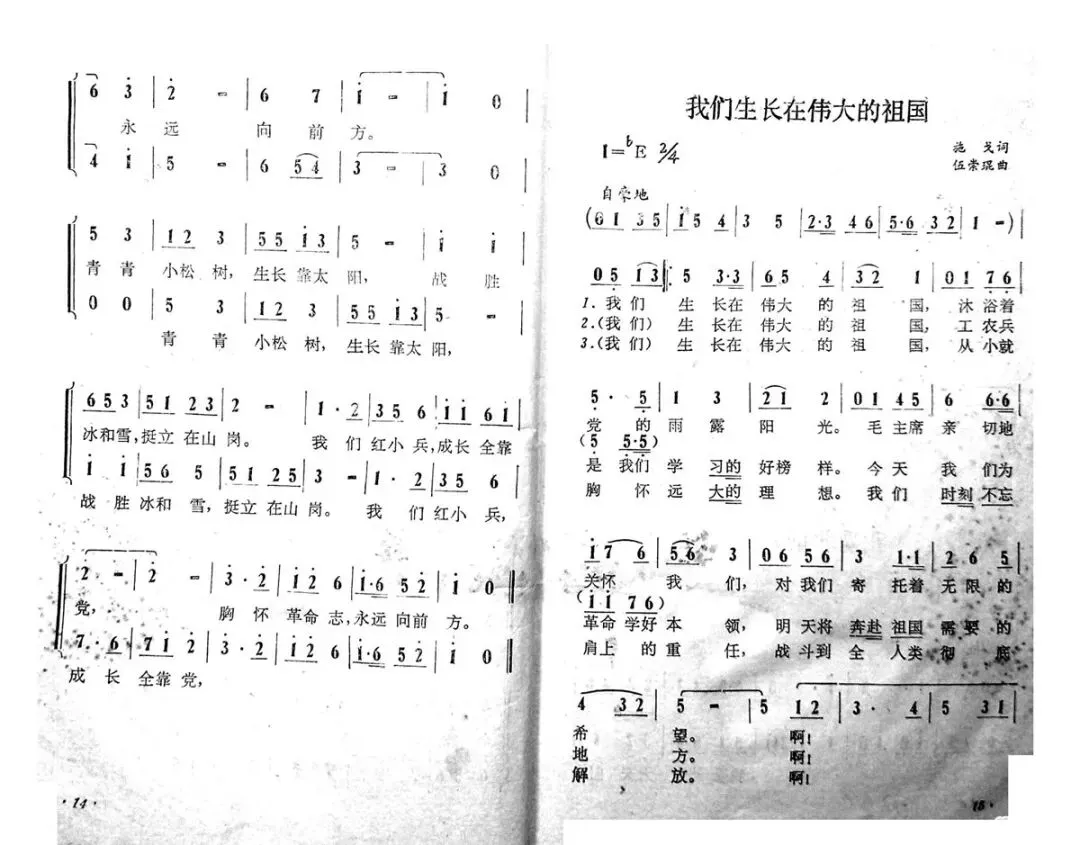 6 3 | 2 - | 6 7 | 1 - | 1 0
永 远 向 前 方。
4 1 | 5 - | 6 5 4 | 3 - | 3 0
5 3 | 1 2 3 | 5 5 1 3 | 5 - | 1 1
青 青 小松 树, 生长 靠太 阳, 战 胜
0 0 | 5 3 | 1 2 3 | 5 5 1 3 | 5 -
青 青 小松 树, 生长 靠太 阳,
6 5 3 | 5 1 2 3 | 2 - | 1 · 2 | 3 5 6 | 1 1 6 1
冰和雪, 挺立 在山 岗。 我 们 红小 兵, 成长 全靠
1 1 | 5 6 5 | 5 1 2 5 | 3 - | 1 · 2 | 3 5 6
战 胜 冰和 雪, 挺立 在山 岗。 我 们 红小 兵,
2 - | 2 - | 3 · 2 | 1 2 6 | 1·6 5 2 | 1 0
党, 胸 怀 革命 志, 永远 向前 方。
7 · 6 | 7 1 2 | 3 · 2 | 1 2 6 | 1·6 5 2 | 1 0
成 长 全靠 党,
·14·
我们生长在伟大的祖国
1=bE 2/4
施 戈 词
伍崇琨 曲
自豪地
(0 1 3 5 | 1 5 4 | 3 5 | 2·3 4 6 | 5·6 3 2 | 1 -)
0 5 1 3 | 5 3·3 | 6 5 4 | 3 2 1 | 0 1 7 6
1. 我 们 生 长在 伟大 的 祖 国, 沐 浴着
2.(我 们) 生 长在 伟大 的 祖 国, 工 农兵
3.(我 们) 生 长在 伟大 的 祖 国, 从 小就
5 · 5 | 1 3 | 2 1 2 | 0 1 4 5 | 6 6·6
党 的 雨 露 阳 光。 毛 主席 亲 切地
(5 5·5)
是 我们 学 习的 好榜 样。 今天 我 们为
胸 怀 远 大的 理 想。 我们 时刻 不忘
1 7 6 | 5 6 3 | 0 6 5 6 | 3 1·1 | 2 6 5
关怀 我 们, 对 我们 寄 托着 无限 的
(1 1 7 6)
革命 学好 本 领, 明天将 奔赴 祖国 需要 的
肩上 的 重 任, 战斗到 全 人类 彻 底
4 3 2 | 5 - | 5 1 2 | 3 · 4 | 5 3 1
希 望。 啊!
地 方。 啊!
解 放。 啊!
·15·